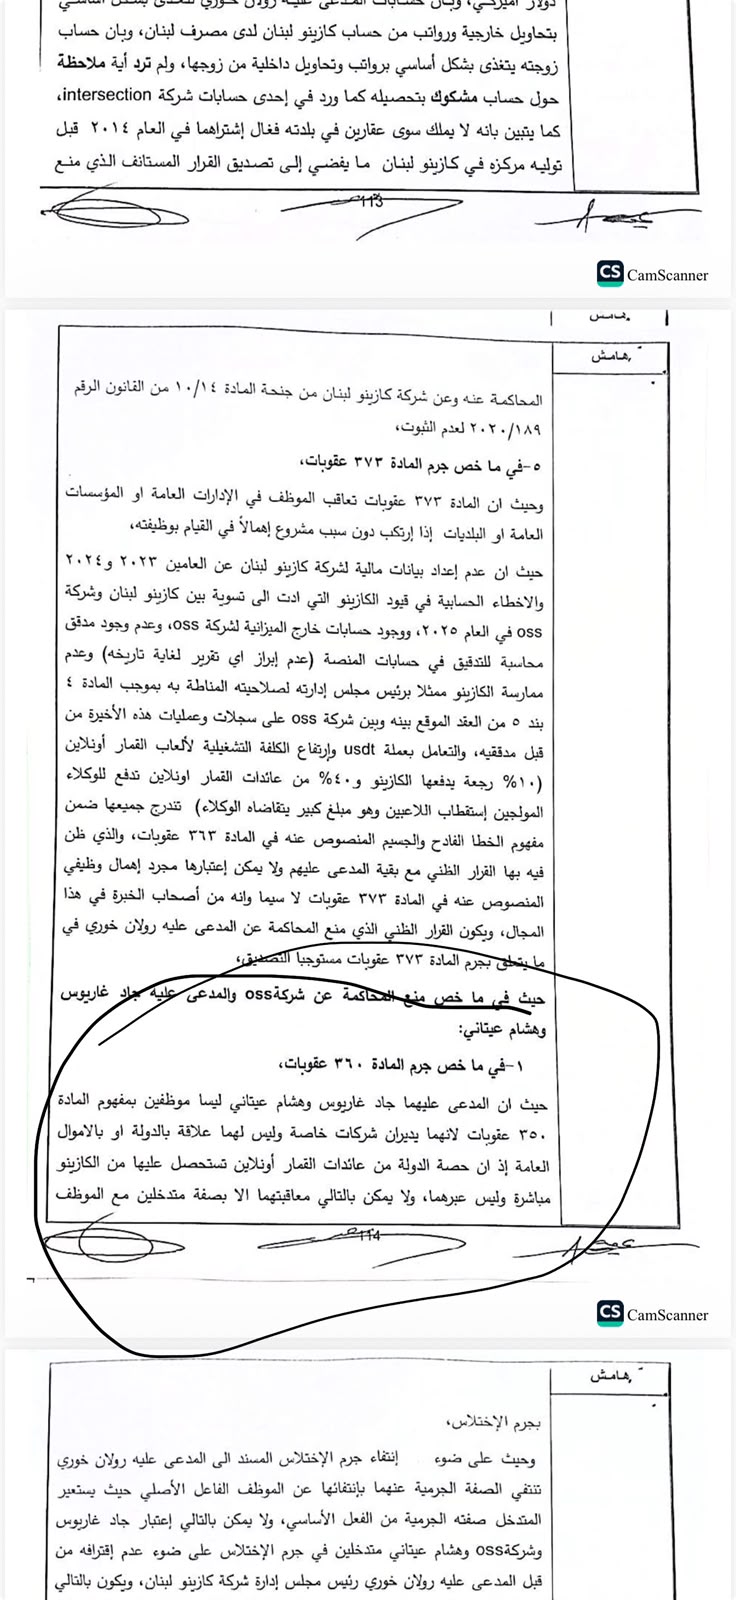 دولار أميركي، وبان حسابات المدعى عليه رولان خوري تتغذى بشكل أساسي
بتحاويل خارجية ورواتب من حساب كازينو لبنان لدى مصرف لبنان، وبان حساب
زوجته يتغذى بشكل أساسي برواتب وتحاويل داخلية من زوجها، ولم ترد أية ملاحظة
حول حساب مشكوك بتحصيله كما ورد في إحدى حسابات شركة intersection،
كما يتبين بانه لا يملك سوى عقارين في بلدته فغال إشتراهما في العام ٢٠١٤ قبل
توليه مركزه في كازينو لبنان ما يفضي إلى تصديق القرار المستانف الذي منع
113
CS CamScanner
هامش
هامش
المحاكمة عنه وعن شركة كازينو لبنان من جنحة المادة ١٠/١٤ من القانون الرقم
٢٠٢٠/١٨٩ لعدم الثبوت،
٥-في ما خص جرم المادة ٣٧٣ عقوبات،
وحيث ان المادة ٣٧٣ عقوبات تعاقب الموظف في الإدارات العامة او المؤسسات
العامة او البلديات إذا إرتكب دون سبب مشروع إهمالاً في القيام بوظيفته،
حيث ان عدم إعداد بيانات مالية لشركة كازينو لبنان عن العامين ٢٠٢٣ و٢٠٢٤
والاخطاء الحسابية في قيود الكازينو التي ادت الى تسوية بين كازينو لبنان وشركة
oss في العام ٢٠٢٥، ووجود حسابات خارج الميزانية لشركة oss، وعدم وجود مدقق
محاسبة للتدقيق في حسابات المنصة (عدم إبراز اي تقرير لغاية تاريخه) وعدم
ممارسة الكازينو ممثلا برئيس مجلس إدارته لصلاحيته المناطة به بموجب المادة ٤
بند ٥ من العقد الموقع بينه وبين شركة oss على سجلات وعمليات هذه الأخيرة من
قبل مدققيه، والتعامل بعملة usdt وإرتفاع الكلفة التشغيلية لألعاب القمار أونلاين
(١٠% رجعة يدفعها الكازينو و٤٠% من عائدات القمار اونلاين تدفع للوكلاء
المولجين إستقطاب اللاعبين وهو مبلغ كبير يتقاضاه الوكلاء) تندرج جميعها ضمن
مفهوم الخطا الفادح والجسيم المنصوص عنه في المادة ٣٦٣ عقوبات، والذي ظن
فيه بها القرار الظني مع بقية المدعى عليهم ولا يمكن إعتبارها مجرد إهمال وظيفي
المنصوص عنه في المادة ٣٧٣ عقوبات لا سيما وانه من أصحاب الخبرة في هذا
المجال، ويكون القرار الظني الذي منع المحاكمة عن المدعى عليه رولان خوري في
ما يتعلق بجرم المادة ٣٧٣ عقوبات مستوجبا التصديق،
حيث في ما خص منع المحاكمة عن شركة oss والمدعى عليه جاد غاريوس
وهشام عيتاني:
١-في ما خص جرم المادة ٣٦٠ عقوبات،
حيث ان المدعى عليهما جاد غاريوس وهشام عيتاني ليسا موظفين بمفهوم المادة
٣٥٠ عقوبات لانهما يديران شركات خاصة وليس لهما علاقة بالدولة او بالاموال
العامة إذ ان حصة الدولة من عائدات القمار أونلاين تستحصل عليها من الكازينو
مباشرة وليس عبرهما، ولا يمكن بالتالي معاقبتهما الا بصفة متدخلين مع الموظف
114
CS CamScanner
هامش
بجرم الإختلاس،
وحيث على ضوء إنتفاء جرم الإختلاس المسند الى المدعى عليه رولان خوري
تنتفي الصفة الجرمية عنهما بإنتفائها عن الموظف الفاعل الأصلي حيث يستعير
المتدخل صفته الجرمية من الفعل الأساسي، ولا يمكن بالتالي إعتبار جاد غاريوس
وشركة oss وهشام عيتاني متدخلين في جرم الإختلاس على ضوء عدم إقترافه من
قبل المدعى عليه رولان خوري رئيس مجلس إدارة شركة كازينو لبنان، ويكون بالتالي